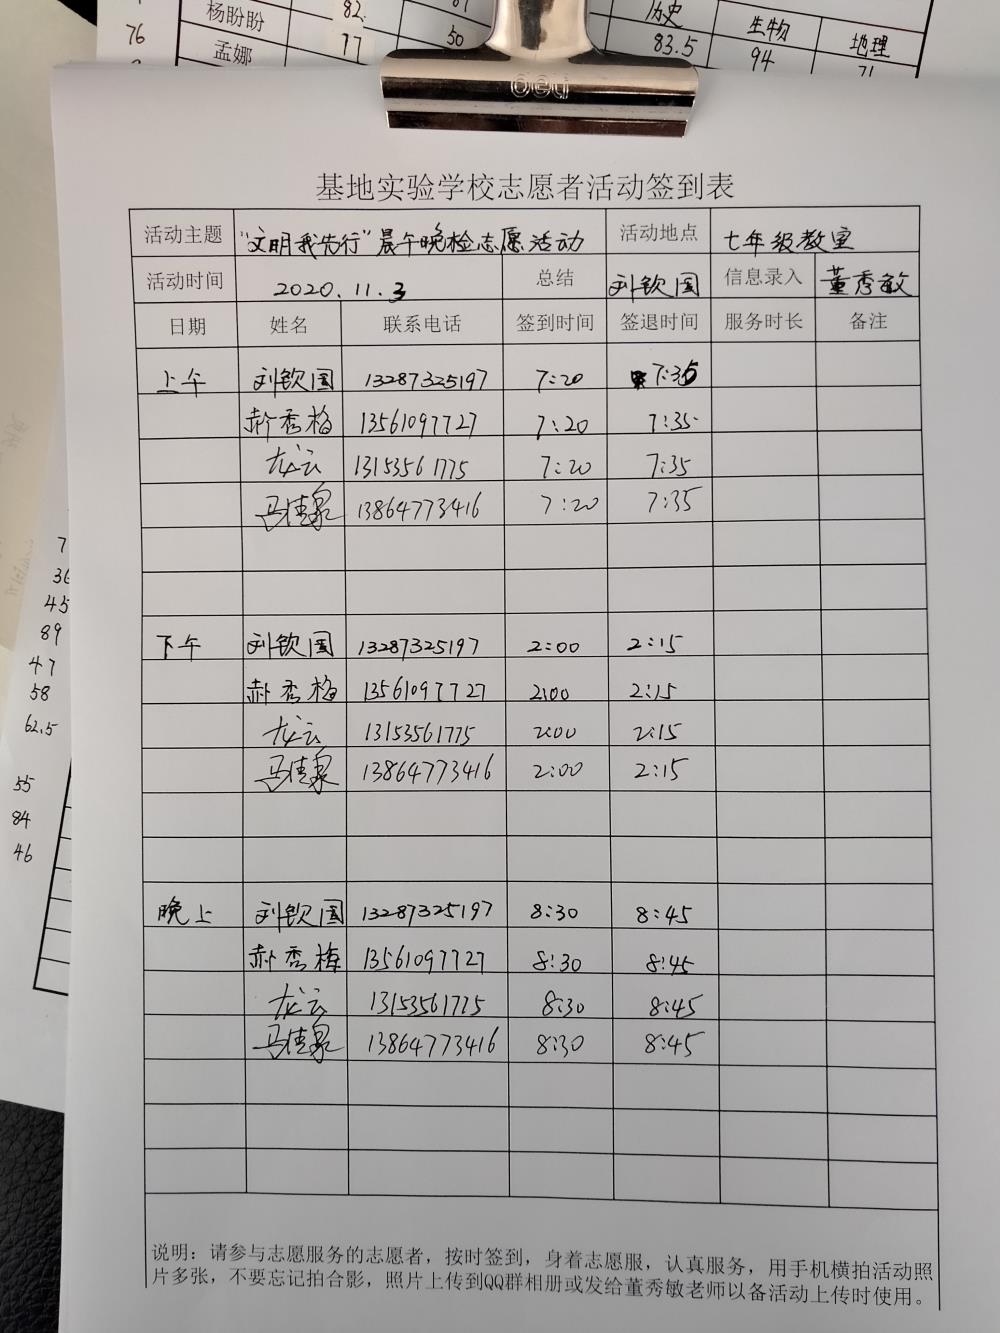 杨盼盼 82
76 孟娜 77 50 历史 生物 地理
83.5 94 71
deli
基地实验学校志愿者活动签到表
活动主题 "文明我先行"晨午晚检志愿活动 活动地点 七年级教室
活动时间 2020.11.3 总结 刘钦国 信息录入 董秀敏
日期 姓名 联系电话 签到时间 签退时间 服务时长 备注
上午 刘钦国 13287325197 7:20 7:35
郝秀梅 13561097727 7:20 7:35
龙云 13153561775 7:20 7:35
马佳泉 13864773416 7:20 7:35
下午 刘钦国 13287325197 2:00 2:15
郝秀梅 13561097727 2:00 2:15
龙云 13153561775 2:00 2:15
马佳泉 13864773416 2:00 2:15
晚上 刘钦国 13287325197 8:30 8:45
郝秀梅 13561097727 8:30 8:45
龙云 13153561775 8:30 8:45
马佳泉 13864773416 8:30 8:45
说明：请参与志愿服务的志愿者，按时签到，身着志愿服，认真服务，用手机横拍活动照
片多张，不要忘记拍合影，照片上传到QQ群相册或发给董秀敏老师以备活动上传时使用。
7
36
45
89
47
58
62.5
55
84
46